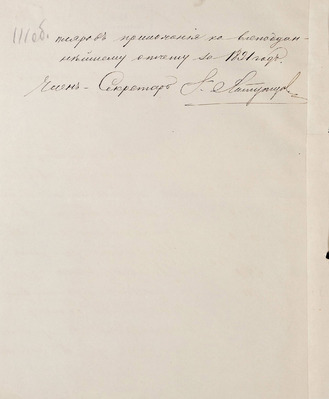 111об.
пляровъ приложенія ко всеподдан-
нѣйшему отчету за 1891 годъ.
Членъ-Секретарь